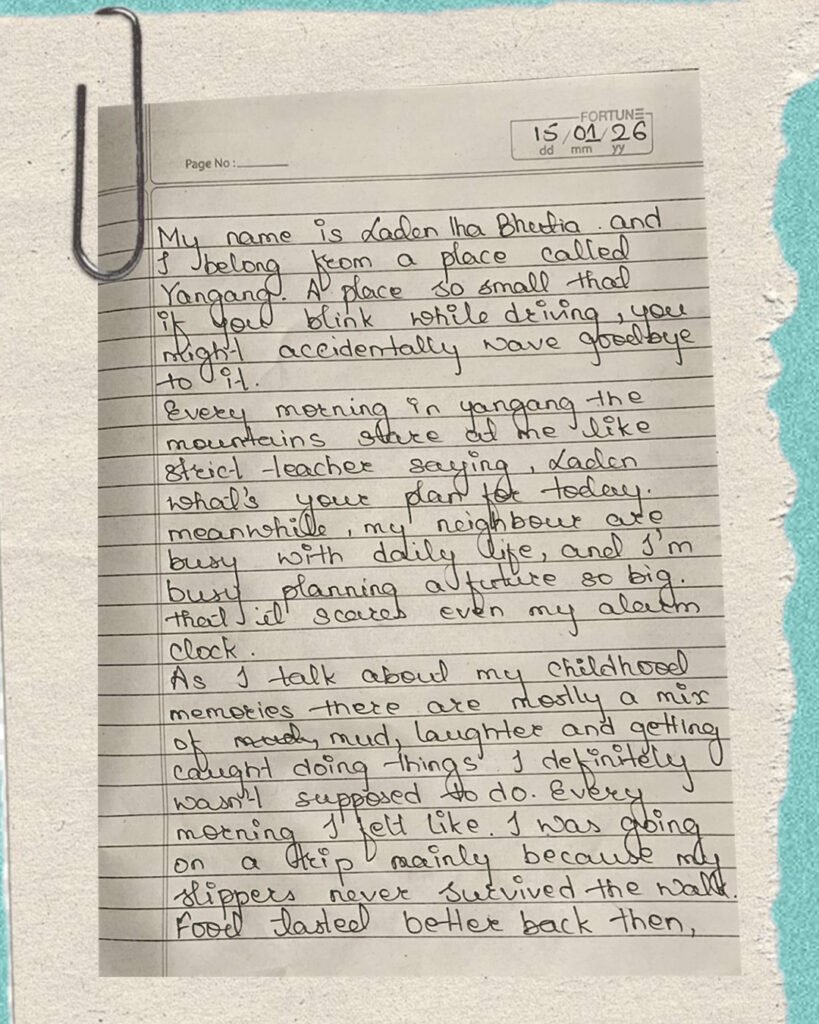 FORTUNE
15/01/26
dd mm yy
Page No :
My name is Laden lha Bhutia. and
I belong from a place called
Yangang. A place so small that
if you blink while driving, you
might accidentally wave goodbye
to it.
Every morning in yangang the
mountains stare at me like
strict teacher saying, Laden
what's your plan for today.
meanwhile, my neighbour are
busy with daily life, and I'm
busy planning a future so big.
that it scares even my alarm
clock.
As I talk about my childhood
memories there are mostly a mix
of mud, laughter and getting
caught doing things I definitely
wasn't supposed to do. Every
morning I felt like. I was going
on a trip mainly because my
slippers never survived the walk.
Food tasted better back then,